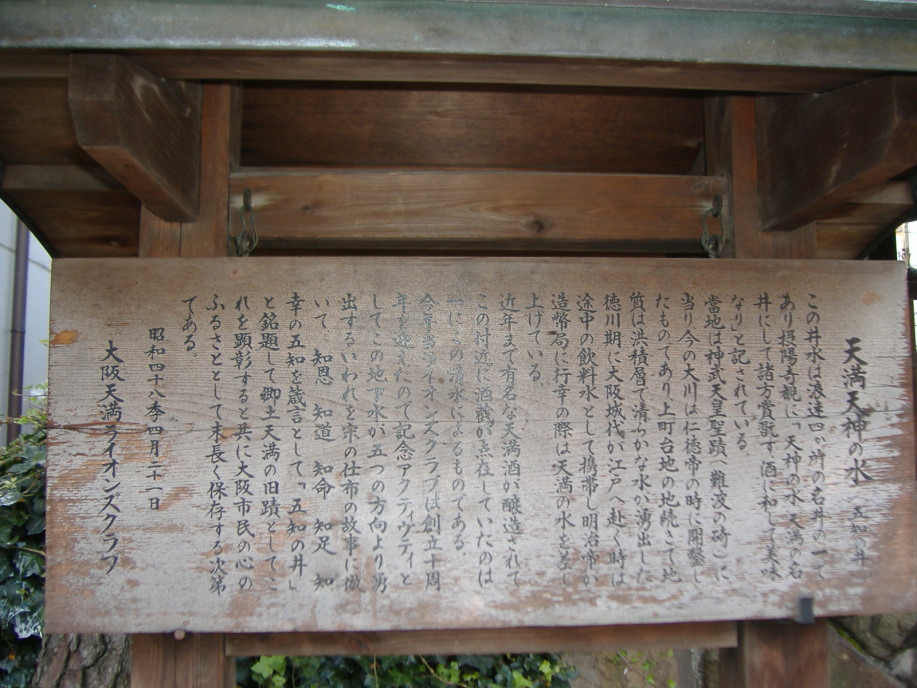 天満天神の水 五知の井
この井水は浪速四か所の名井の一で
あり摂陽奇観に「天神の水天満の名
井にして諸方賞翫す酒に和して美味
なり」と記されている
当地は神武天皇聖蹟「難波の碕」に
当り今の大川は仁徳帝の時に開鑿し
たものであり上町台地の地続きで地
質は洪積層で清らかな水が湧出した
徳川期に大阪城代が江戸へ赴く時は
途中の飲料水として携帯し明治帝が
造幣局に行幸の際は天満の水を差し
上げている
近年まで有名な天満酒が醸造されて
この付近に酒蔵が点在していたのは
一にこの清水によるものである
今年当ライオンズクラブは創立十周
年を迎えたので記念アクティヴィティと
してこの地下水が五つの方向より湧
出するいわれを宗の仕布の故事に倣
いて、知恩 知道 知命 知足 知
幸の五知を箴言として「五知の井」
と銘題して郷土天満の旧蹟としてこ
れを顕彰すると共に大阪市民の心の
ふるさととして末長く保存する次第
である
昭和四十八年四月二十一日
大阪天満ライオンズクラブ